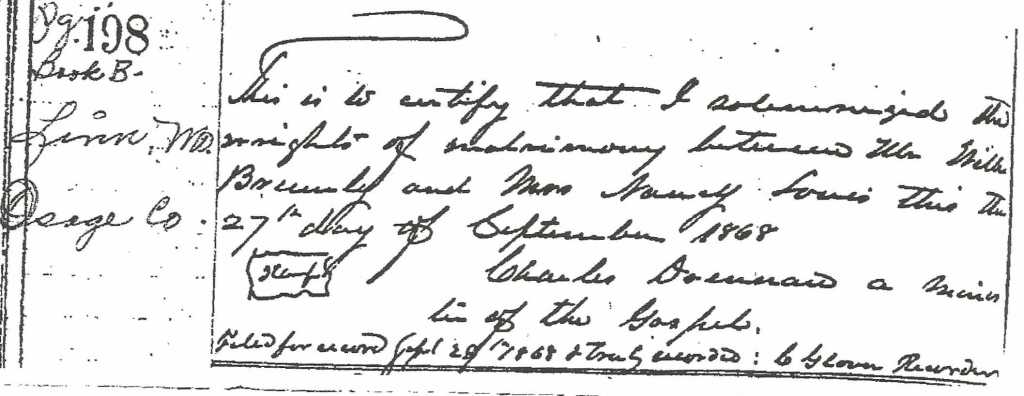 Pg. 198
Book B-
Linn, Mo.
Osage Co.
This is to certify that I solemnized the
wrights of matrimony between Mr
and Mrs Nancy this the
27th day of September 1868
Stamp
Charles a minis
ter of the Gospel.
Filed for record Sept 28th 1868 & truly recorded : C Glover Recorder